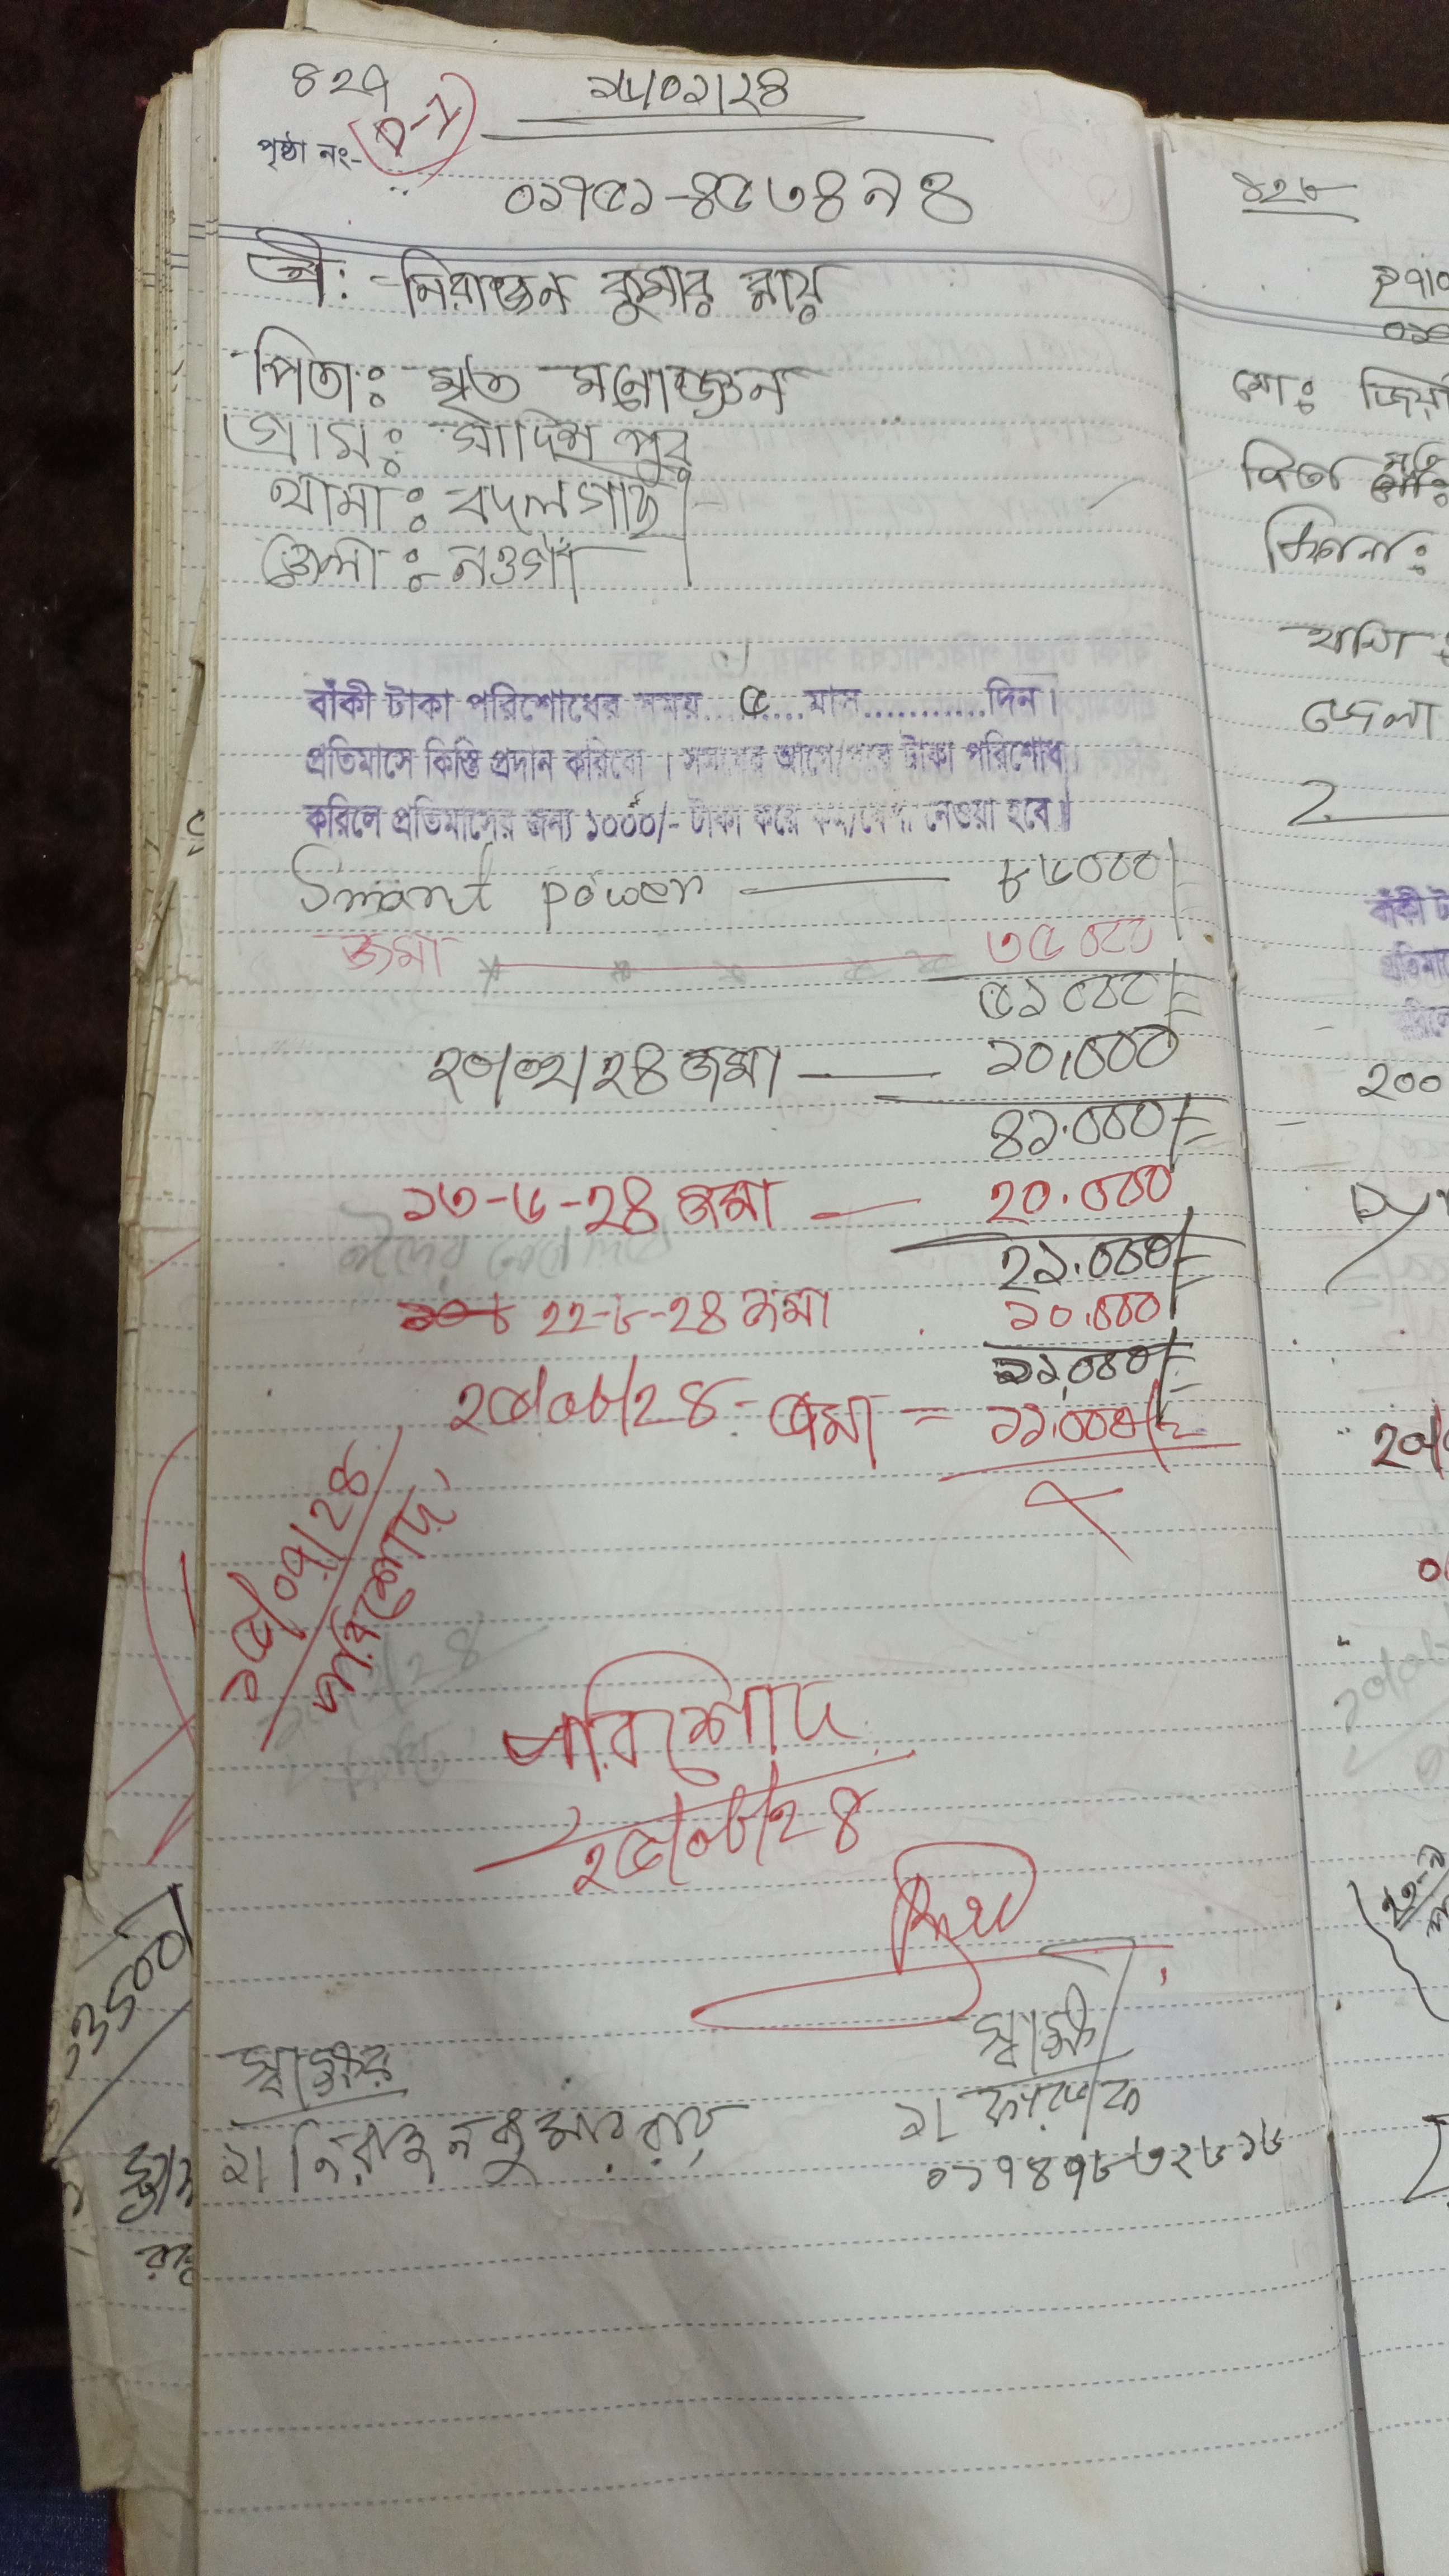 ৪২৭
১৬/০২/২৪
পৃষ্ঠা নং-
০১৭৫১-৪৫৩৪৯৪
শ্রী: নিরাঞ্জন কুমার রায়
পিতাঃ মৃত মনোরঞ্জন
গ্রামঃ গাদিশপুর
থানাঃ বদলগাছী
জেলাঃ নওগাঁ
বাঁকী টাকা পরিশোধের সময়......৫....মাস............দিন।
প্রতিমাসে কিস্তি প্রদান করিবো। সময়ের আগে/পরে টাকা পরিশোধ
করিলে প্রতিমাসের জন্য ১০০০/- টাকা করে কম/বেশী নেওয়া হবে।
Smart power — ৮৬০০০/=
জমা — ৩৫০০০
৫১০০০/=
২০/০২/২৪ জমা — ১০,০০০
৪১.০০০/=
১৩-৬-২৪ জমা — ২০.০০০
২১.০০০/=
২২-৮-২৪ জমা ১০.০০০
১১,০০০/=
২৫/০৮/২৪ - জমা = ১১.০০০/=
১৫/০৭/২৪
পরিশোদ
পরিশোদ
২৫/০৮/২৪
স্বাক্ষর
১। নিরাঞ্জন কুমার রায়
স্বাক্ষী
১। ফারুক
০১৭৪৭৮৬২৮১৬
3500
৪২৮
মোঃ
পিতা
জেলা
২০০